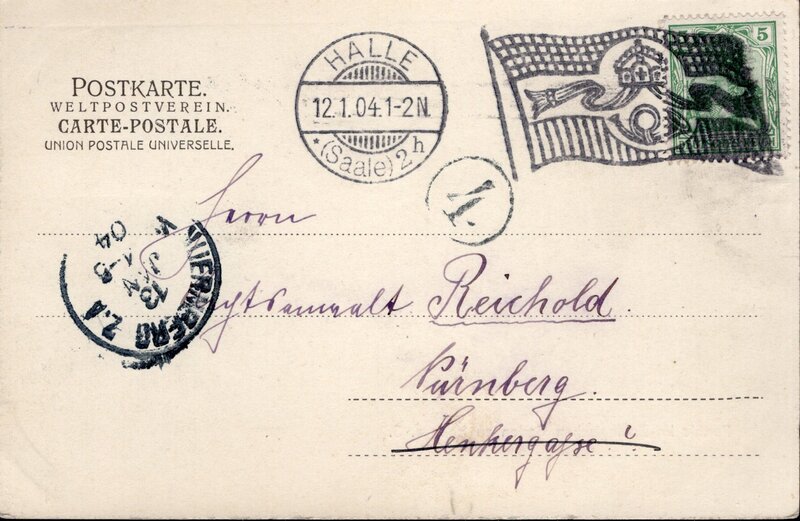 POSTKARTE.
WELTPOSTVEREIN.
CARTE-POSTALE.
UNION POSTALE UNIVERSELLE.
HALLE
12.1.04.1-2N.
*(Saale)2h
5
1.
NUERNBERG 2.A
13
JAN
04
Herrn
Rechtsanwalt Reichold.
Nürnberg.